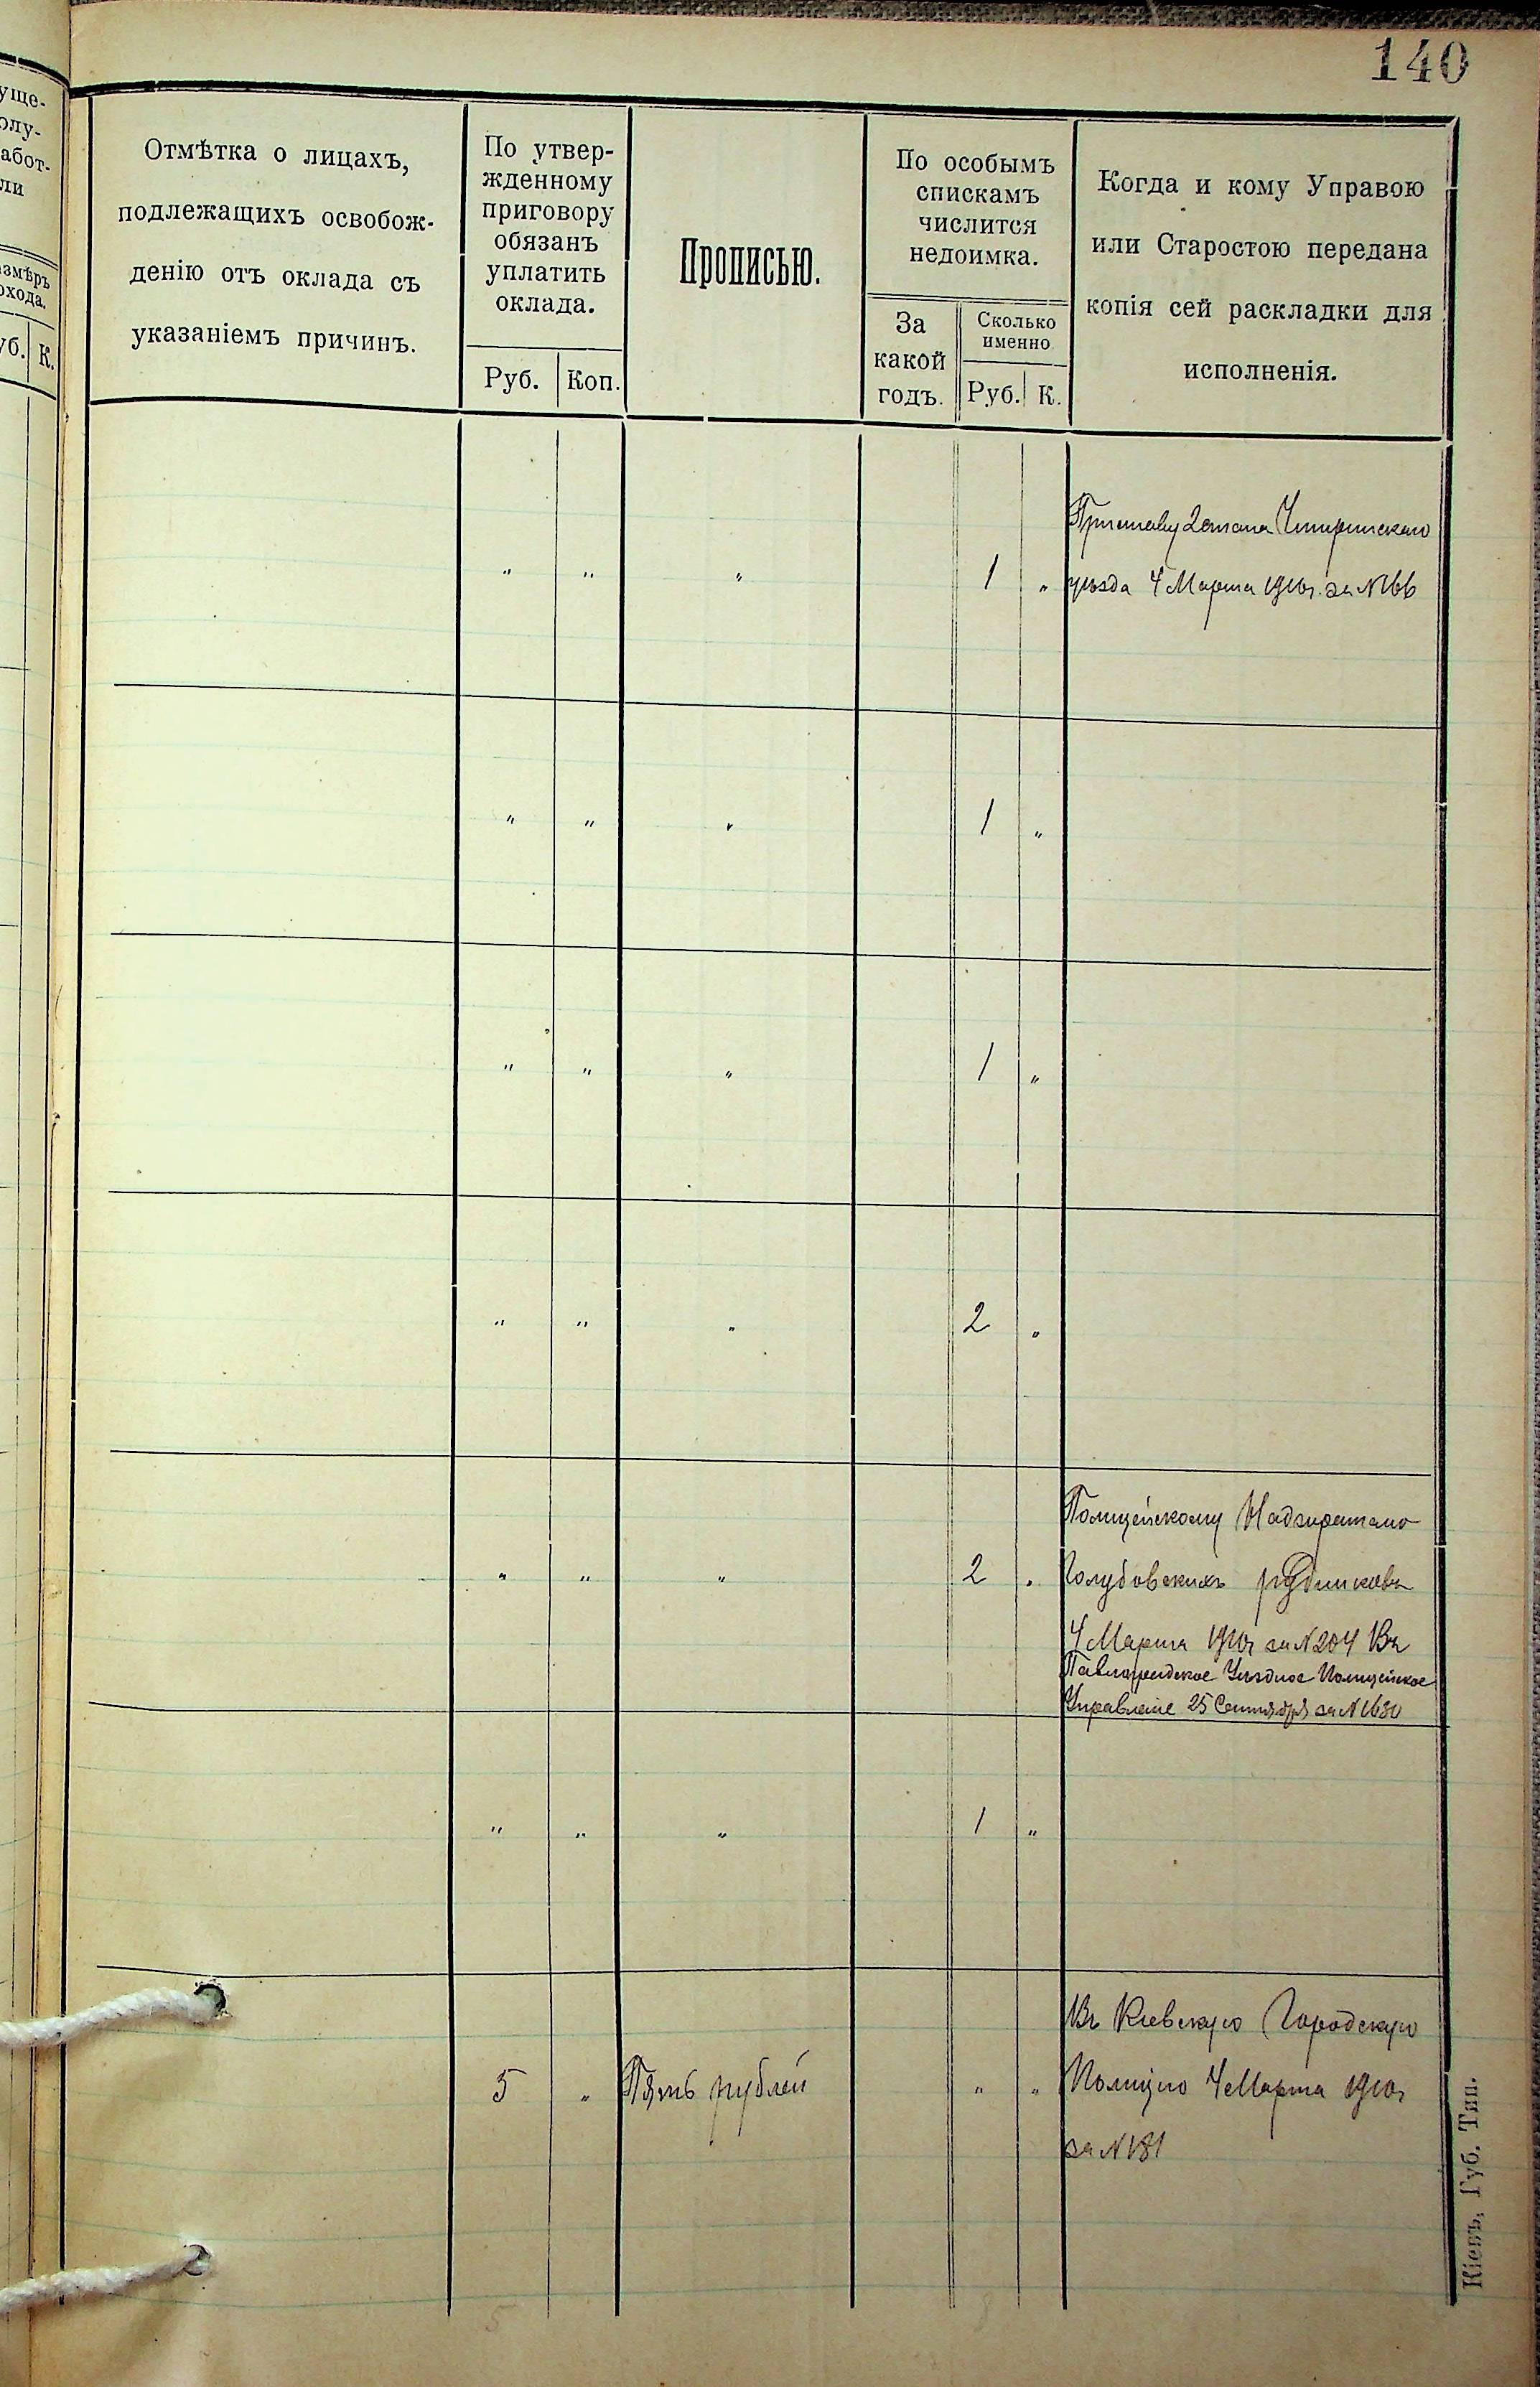 140
уще-
олу-
абот-
ли
змѣръ
охода.
уб. К.
Отмѣтка о лицахъ,
подлежащихъ освобож-
денію отъ оклада съ
указаніемъ причинъ.
По утвер-
жденному
приговору
обязанъ
уплатить
оклада.
Руб. Коп.
Прописью.
По особымъ
спискамъ
числится
недоимка.
За
какой
годъ.
Сколько
именно
Руб. К.
Когда и кому Управою
или Старостою передана
копія сей раскладки для
исполненія.
Приставу 2 стана Чигиринскаго
" " " 1 " уѣзда 4 Марта 1910г. за №166
" " " 1 "
" " " 1 "
" " " 2 "
Полицейскому Надзирателю
" " " 2 " Голубовскихъ рудниковъ
4 Марта 1910г за №204 Въ
Павлоградское Уѣздное Полицейское
Управленіе 25 Сентября за №1630
" " " 1 "
Въ Кіевскую Городскую
5 " Пять рублей " " Полицію 4 Марта 1910г
за №181
Кіевъ, Губ. Тип.